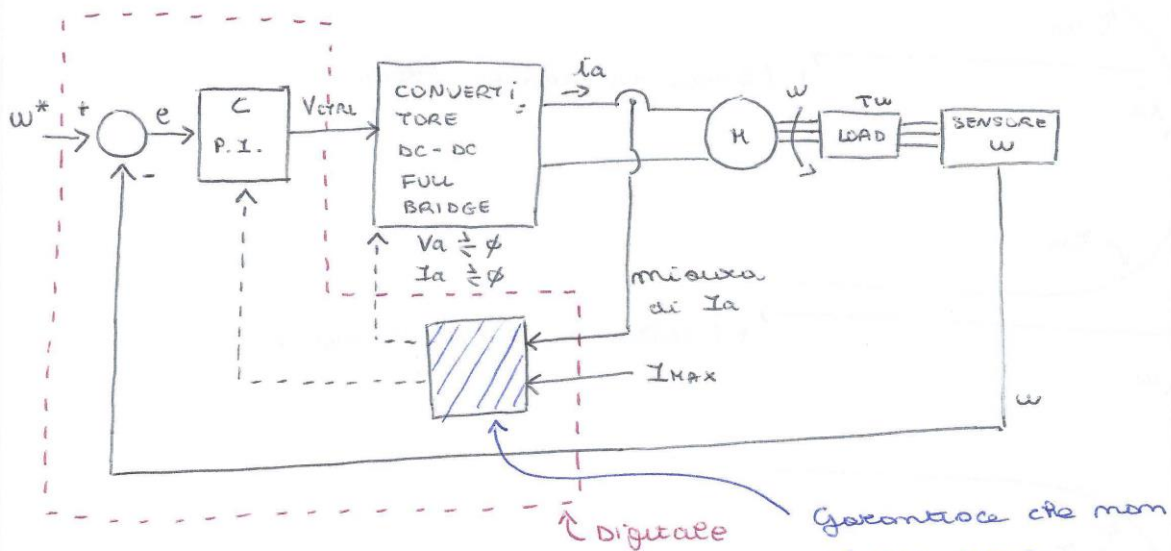 ω* + e C P.I. VCTRL
-
CONVERTI_
TORE
DC-DC
FULL
BRIDGE
Va ≷ ∅
Ia ≷ ∅
ia
M
ω
Tω
LOAD
SENSORE
ω
misura
di Ia
IMAX
ω
Digitale
Garantisce che non